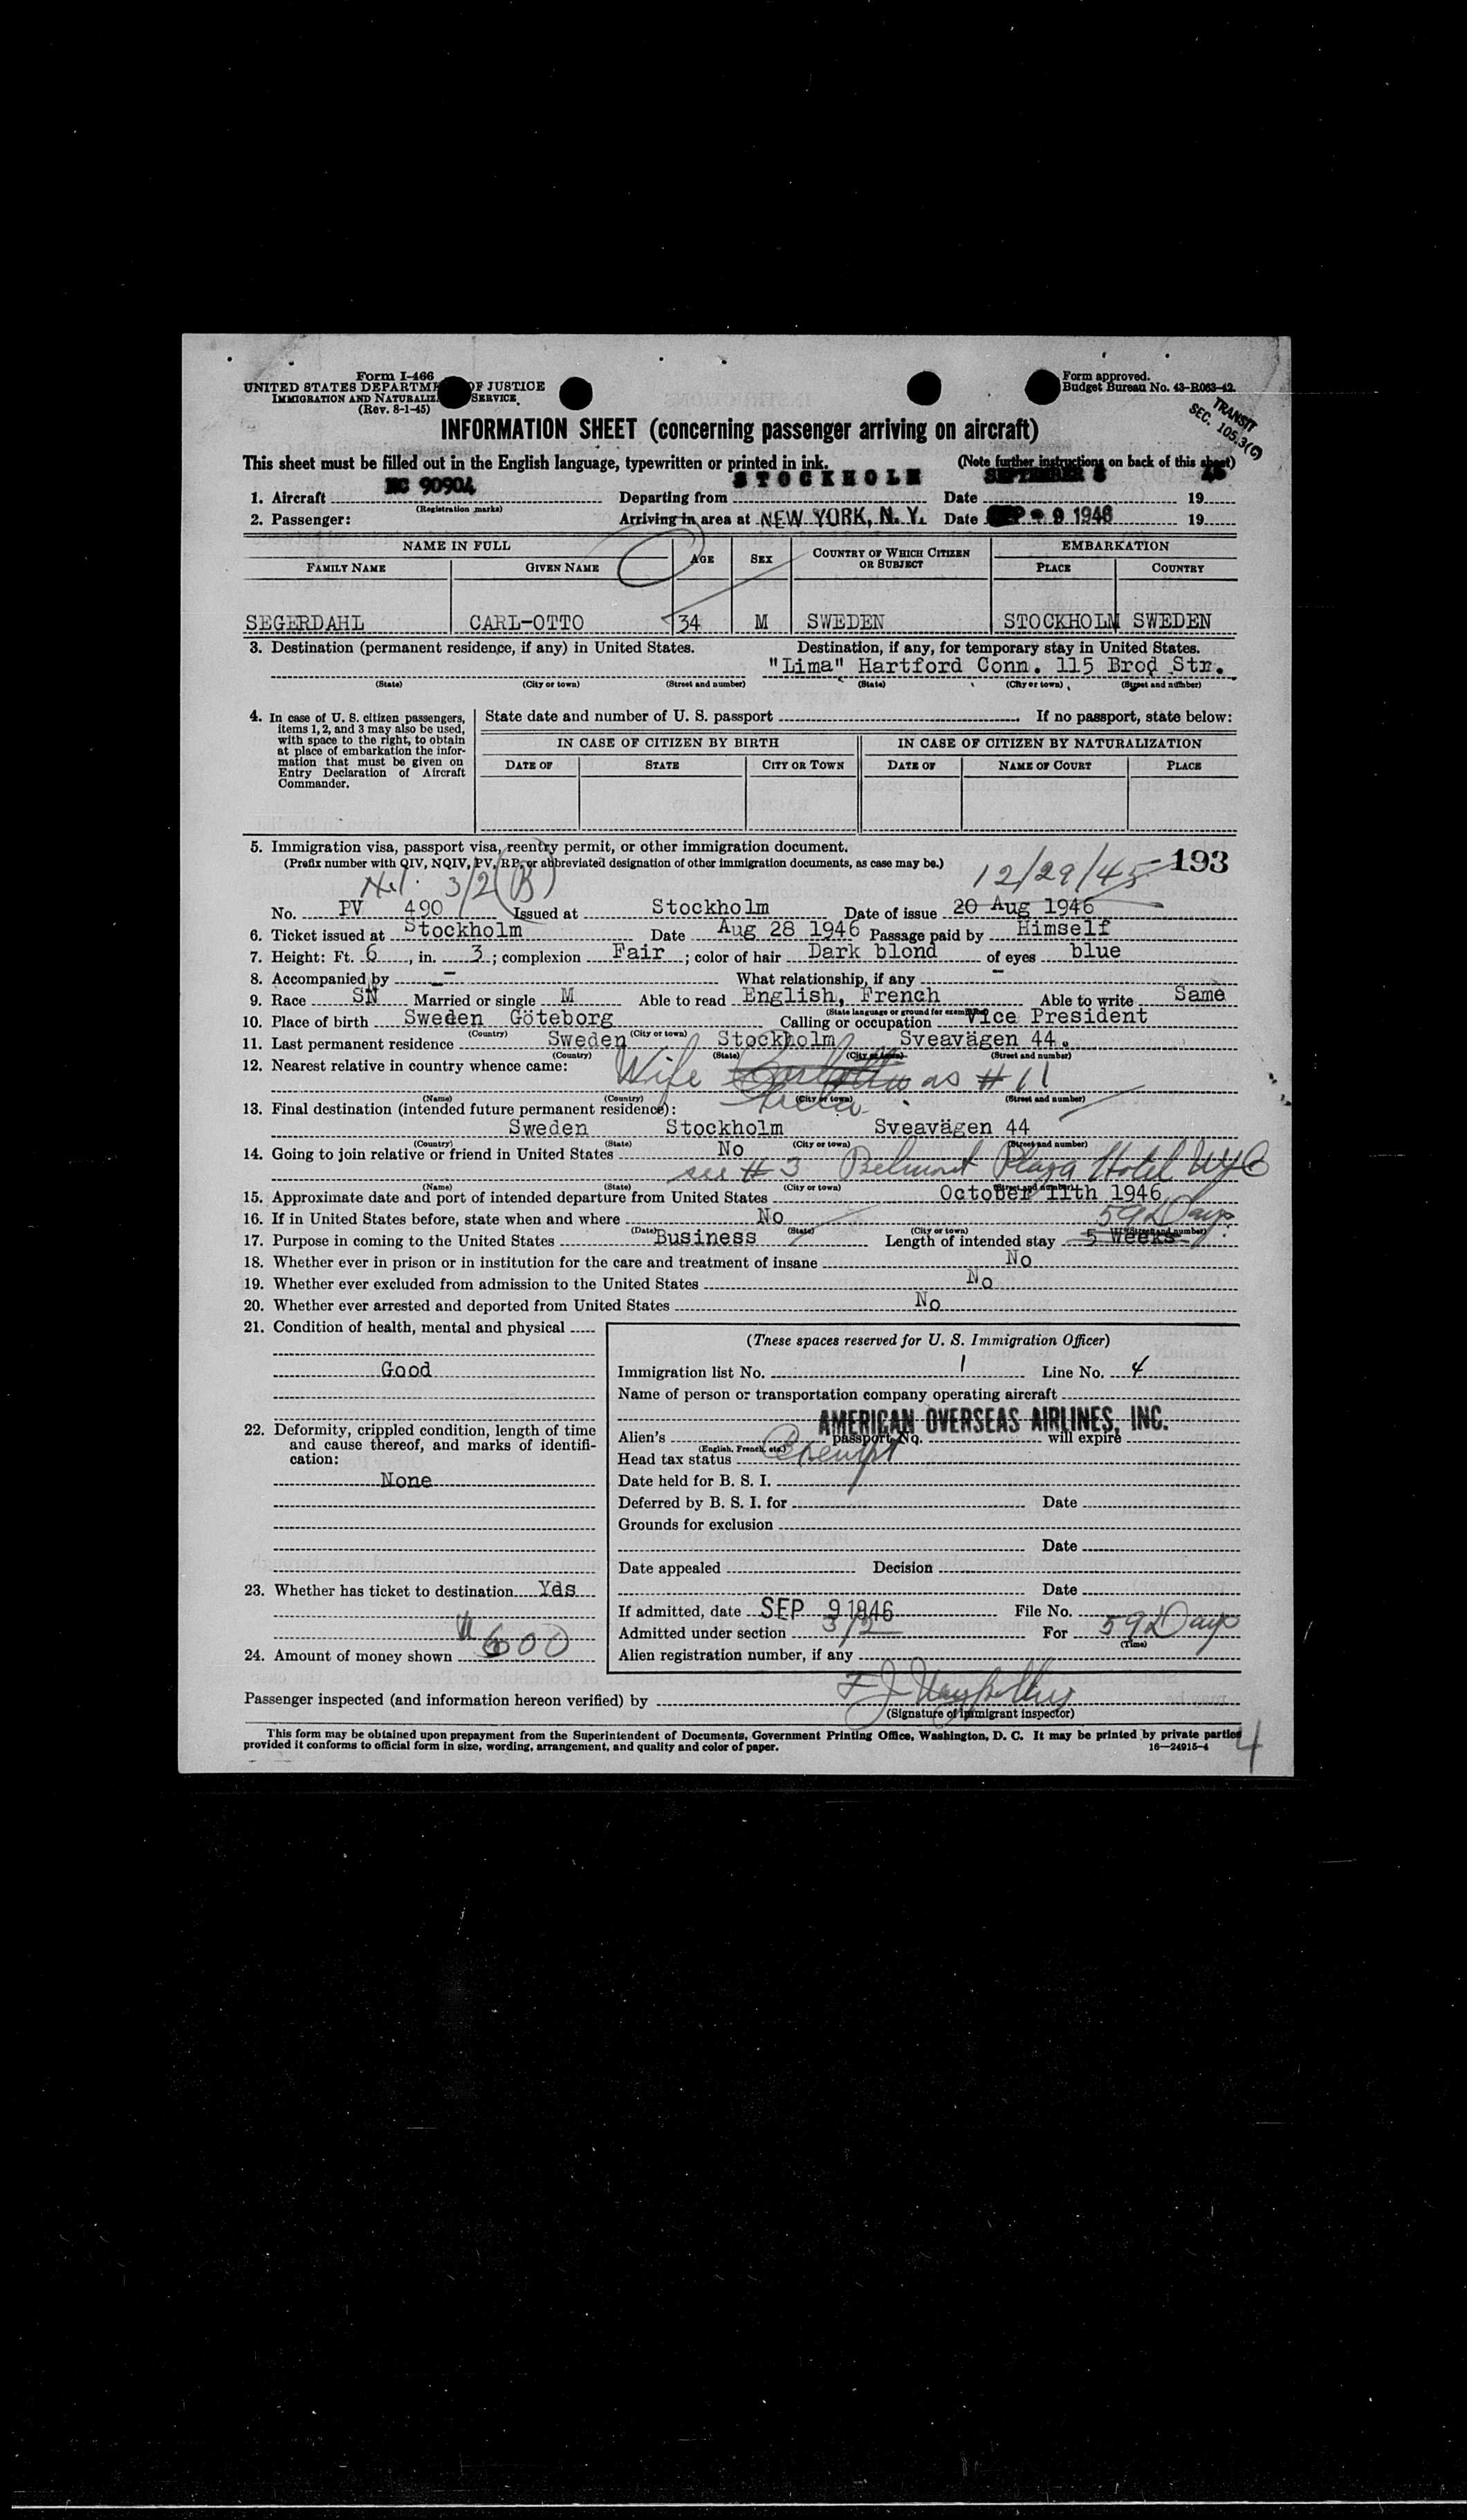 Form I-466
UNITED STATES DEPARTM OF JUSTICE
IMMIGRATION AND NATURALIZ SERVICE
(Rev. 8-1-45)
Form approved.
Budget Bureau No. 43-R063-42.
TRANSIT
SEC. 105.3(C)
INFORMATION SHEET (concerning passenger arriving on aircraft)
This sheet must be filled out in the English language, typewritten or printed in ink. (Note further instructions on back of this sheet)
1. Aircraft NC 90904 Departing from STOCKHOLM Date SEPTEMBER 8 19 46
(Registration marks)
2. Passenger: Arriving in area at NEW YORK, N. Y. Date SEP 9 1946 19
NAME IN FULL AGE SEX COUNTRY OF WHICH CITIZEN OR SUBJECT EMBARKATION
FAMILY NAME GIVEN NAME PLACE COUNTRY
SEGERDAHL CARL-OTTO 34 M SWEDEN STOCKHOLM SWEDEN
3. Destination (permanent residence, if any) in United States. Destination, if any, for temporary stay in United States.
"Lima" Hartford Conn. 115 Brod Str.
(State) (City or town) (Street and number) (State) (City or town) (Street and number)
4. In case of U. S. citizen passengers, items 1, 2, and 3 may also be used, with space to the right, to obtain at place of embarkation the information that must be given on Entry Declaration of Aircraft Commander.
State date and number of U. S. passport If no passport, state below:
IN CASE OF CITIZEN BY BIRTH IN CASE OF CITIZEN BY NATURALIZATION
DATE OF STATE CITY OR TOWN DATE OF NAME OF COURT PLACE
5. Immigration visa, passport visa, reentry permit, or other immigration document.
(Prefix number with QIV, NQIV, PV, RP, or abbreviated designation of other immigration documents, as case may be.)
3/2(B) 12/29/45 193
No. PV 490 Issued at Stockholm Date of issue 20 Aug 1946
6. Ticket issued at Stockholm Date Aug 28 1946 Passage paid by Himself
7. Height: Ft. 6, in. 3; complexion Fair; color of hair Dark blond of eyes blue
8. Accompanied by - What relationship, if any -
9. Race SN Married or single M Able to read English, French Able to write Same
(State language or ground for exemption)
10. Place of birth Sweden Göteborg Calling or occupation Vice President
(Country) (City or town)
11. Last permanent residence Sweden Stockholm Sveavägen 44.
(Country) (State) (City or town) (Street and number)
12. Nearest relative in country whence came: Wife as #11
(Name) (Country) (City or town) (Street and number)
13. Final destination (intended future permanent residence):
Sweden Stockholm Sveavägen 44
(Country) (State) (City or town) (Street and number)
14. Going to join relative or friend in United States No
see #3 Belmont Plaza Hotel NYC
(Name) (State) (City or town) (Street and number)
15. Approximate date and port of intended departure from United States October 11th 1946
16. If in United States before, state when and where No
59 Days
(Date) (State) (City or town) (Street and number)
17. Purpose in coming to the United States Business Length of intended stay 5 Weeks
18. Whether ever in prison or in institution for the care and treatment of insane No
19. Whether ever excluded from admission to the United States No
20. Whether ever arrested and deported from United States No
21. Condition of health, mental and physical
Good
22. Deformity, crippled condition, length of time and cause thereof, and marks of identification:
None
23. Whether has ticket to destination Yds
24. Amount of money shown 600
(These spaces reserved for U. S. Immigration Officer)
Immigration list No. 1 Line No. 4
Name of person or transportation company operating aircraft
AMERICAN OVERSEAS AIRLINES, INC.
Alien's passport No. will expire
(English, French, etc.)
Head tax status Exempt
Date held for B. S. I.
Deferred by B. S. I. for Date
Grounds for exclusion
Date
Date appealed Decision
Date
If admitted, date SEP 9 1946 File No.
Admitted under section 3/2 For 59 Days
(Time)
Alien registration number, if any
Passenger inspected (and information hereon verified) by
(Signature of immigrant inspector)
This form may be obtained upon prepayment from the Superintendent of Documents, Government Printing Office, Washington, D. C. It may be printed by private parties
provided it conforms to official form in size, wording, arrangement, and quality and color of paper. 16—24915-4
4